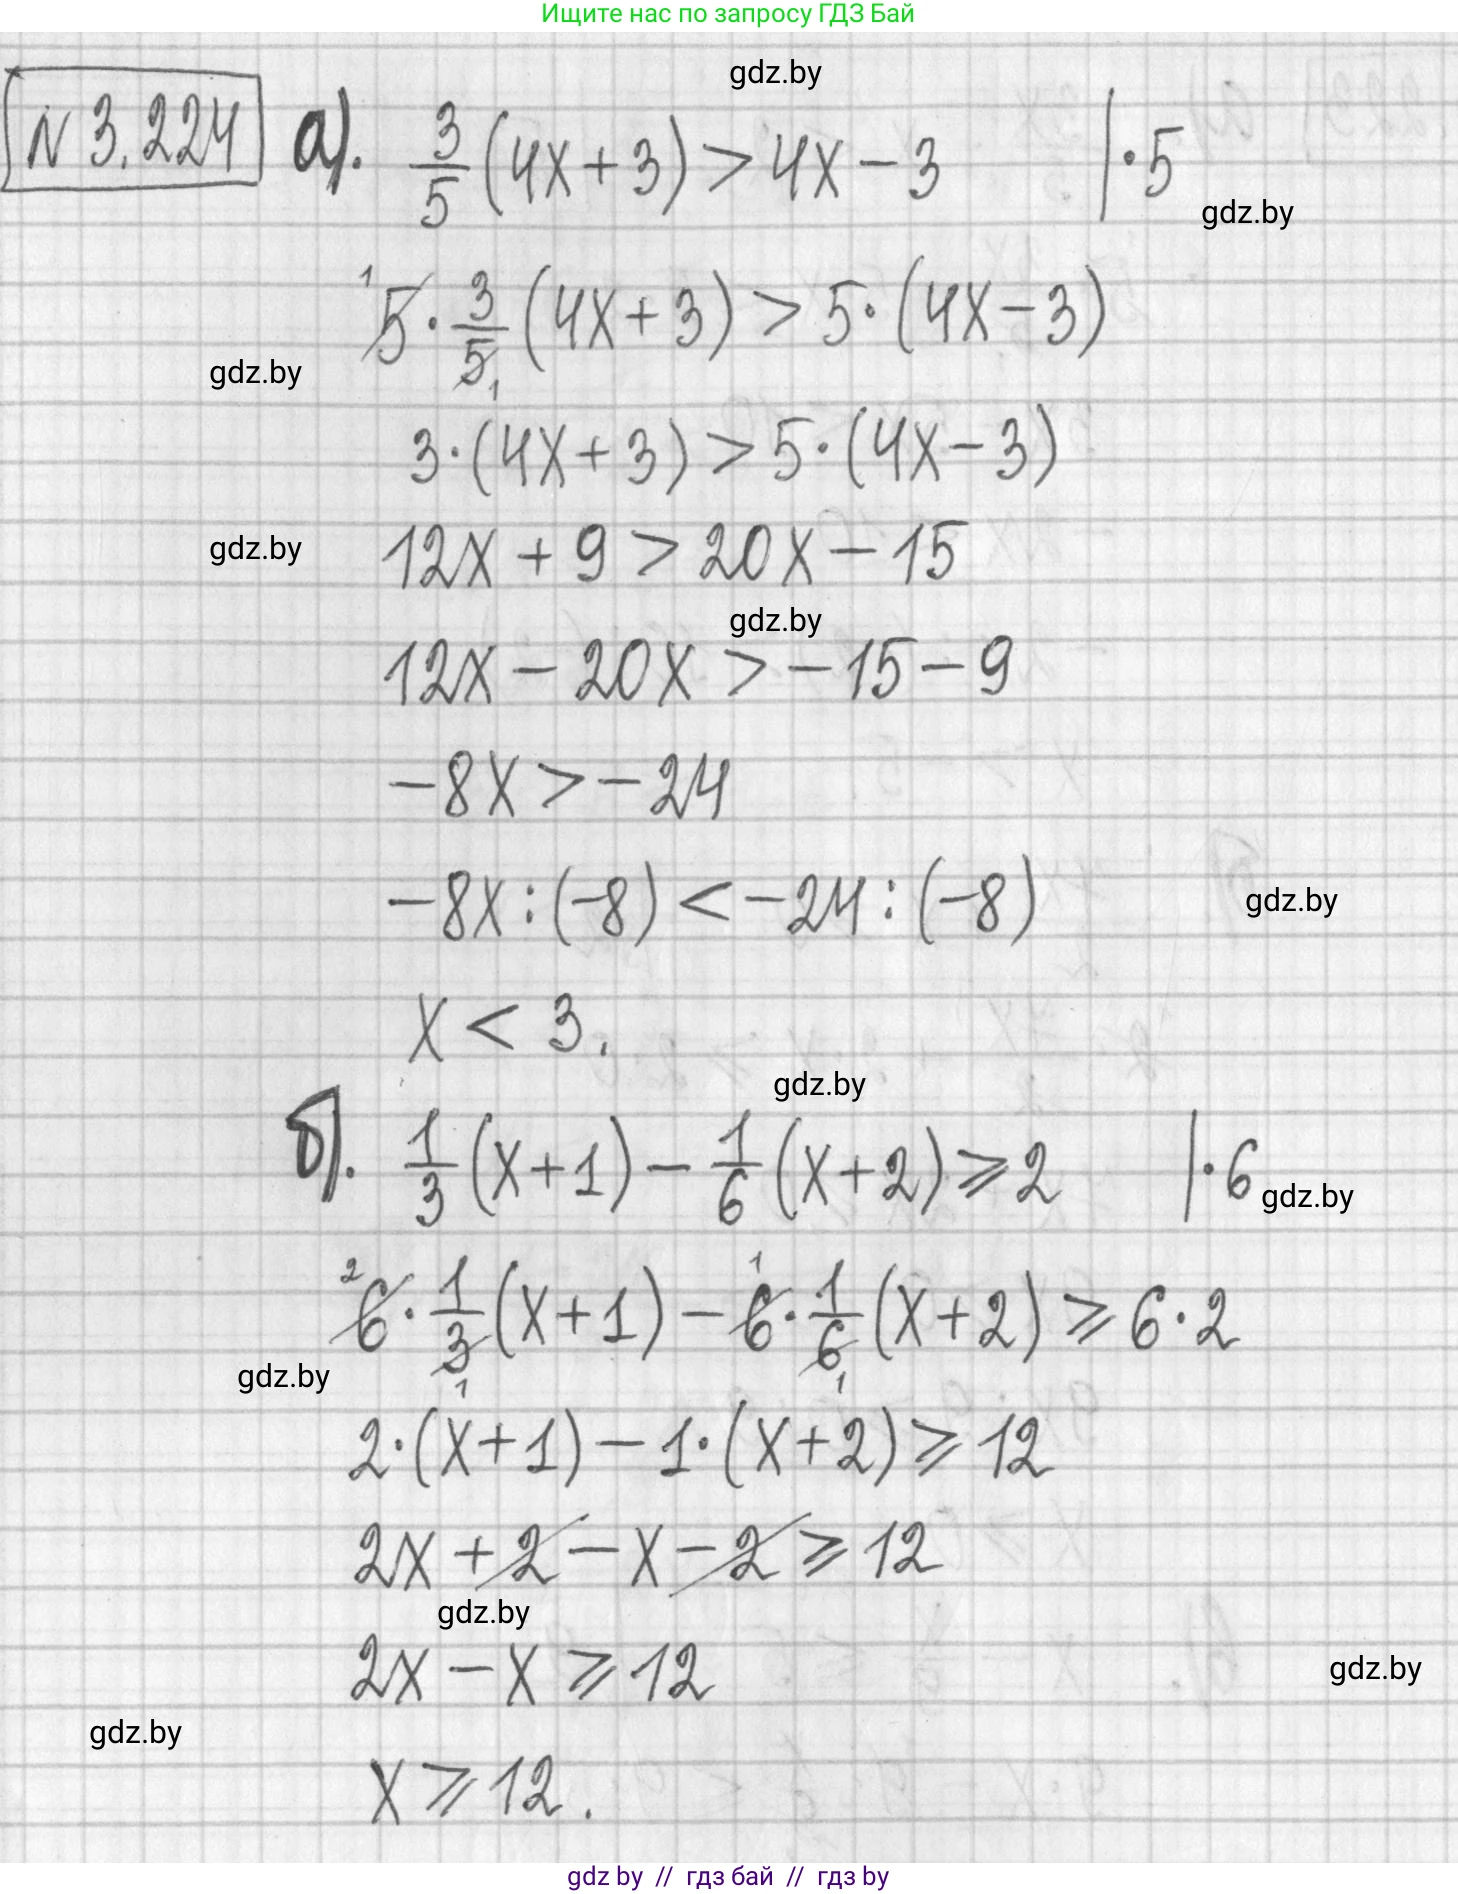 Ищите нас по запросу ГДЗ Бай
gdz.by
№ 3.224 а). 3/5 (4x + 3) > 4x − 3 | · 5
gdz.by
¹5 · 3/5₁ (4x + 3) > 5 · (4x − 3)
gdz.by
3 · (4x + 3) > 5 · (4x − 3)
gdz.by 12x + 9 > 20x − 15
gdz.by
12x − 20x > −15 − 9
−8x > −24
−8x : (−8) < −24 : (−8) gdz.by
x < 3.
gdz.by
б). 1/3 (x + 1) − 1/6 (x + 2) ⩾ 2 | · 6 gdz.by
²6 · 1/3₁ (x + 1) − ¹6 · 1/6₁ (x + 2) ⩾ 6 · 2
gdz.by
2 · (x + 1) − 1 · (x + 2) ⩾ 12
2x + 2 − x − 2 ⩾ 12
gdz.by
2x − x ⩾ 12 gdz.by
gdz.by
x ⩾ 12.
gdz by // гдз бай // гдз by